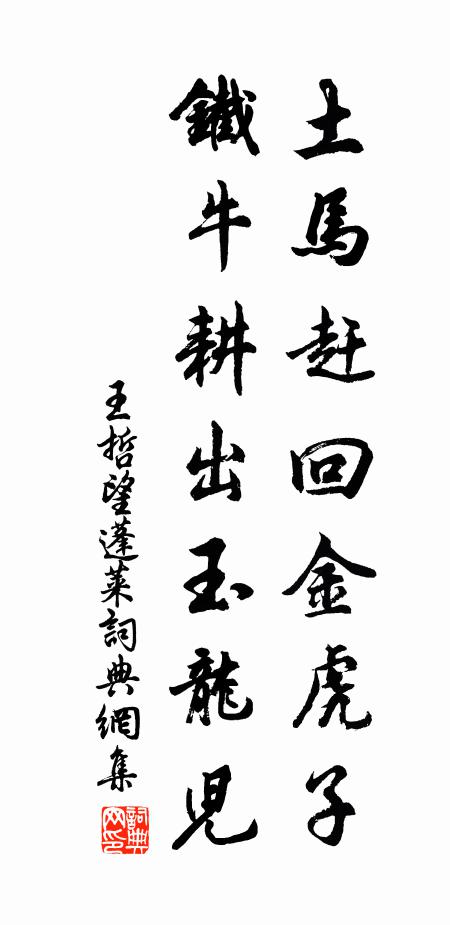 土馬赶回金虎子
鐵牛耕出玉龍児
王哲望蓬萊詞典網集
詞典
网印